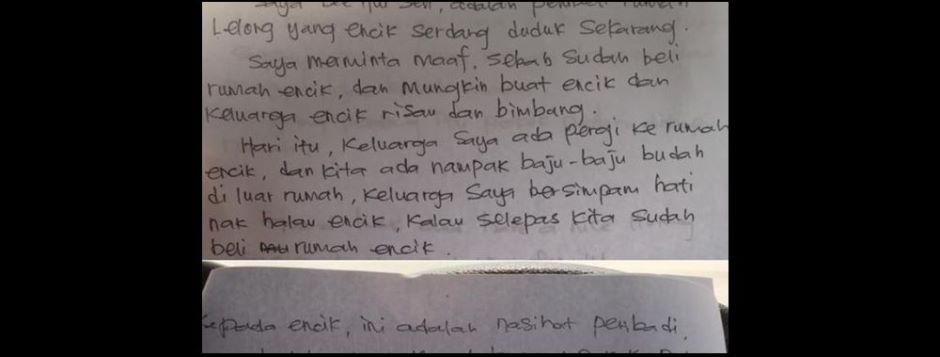 Saya Lee Hui Sen, adalah pembeli rumah
Lelong yang encik serdang duduk sekarang.
Saya meminta maaf, sebab sudah beli
rumah encik, dan mungkin buat encik dan
keluarga encik risau dan bimbang.
Hari itu, keluarga saya ada pergi ke rumah
encik, dan kita ada nampak baju-baju budah
di luar rumah, keluarga saya bersimpam hati
nak halau encik, kalau selepas kita sudah
beli rumah encik.
kepada encik, ini adalah nasihat penbadi